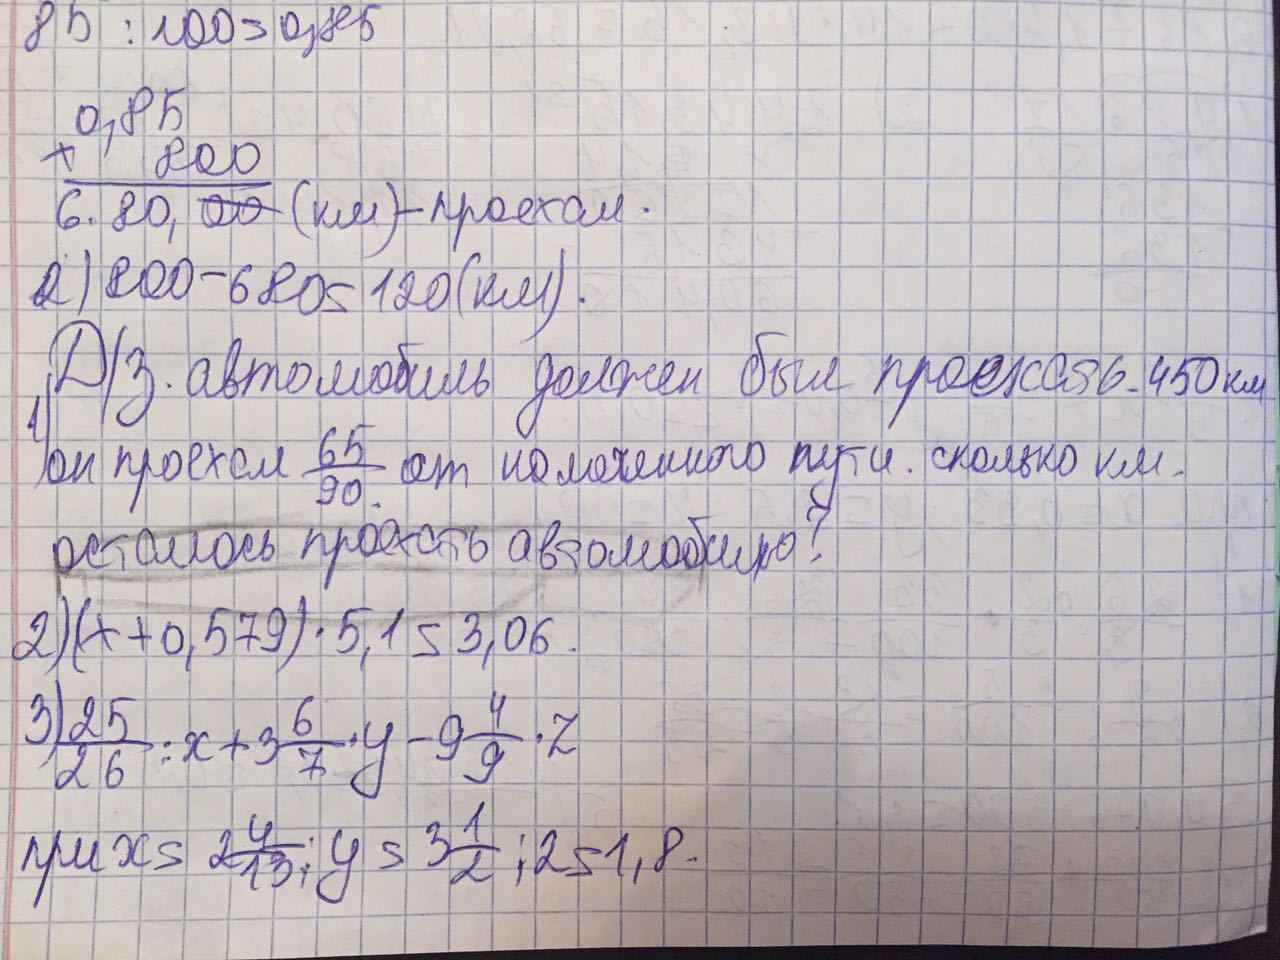 85 : 100 = 0,85
0,85
× 800
6.80,00 (км) - проехал.
2) 800 - 680 = 120 (км).
Д/З. автомобиль должен был проехать 450 км
1) он проехал 65/90 от положенного пути. сколько км.
осталось проехать автомобилю?
2) (x + 0,579) · 5,1 = 3,06.
3) 25/26 : x + 3 6/7 · y - 9 4/9 · z
при x = 2 4/13; y = 3 1/2; z = 1,8.